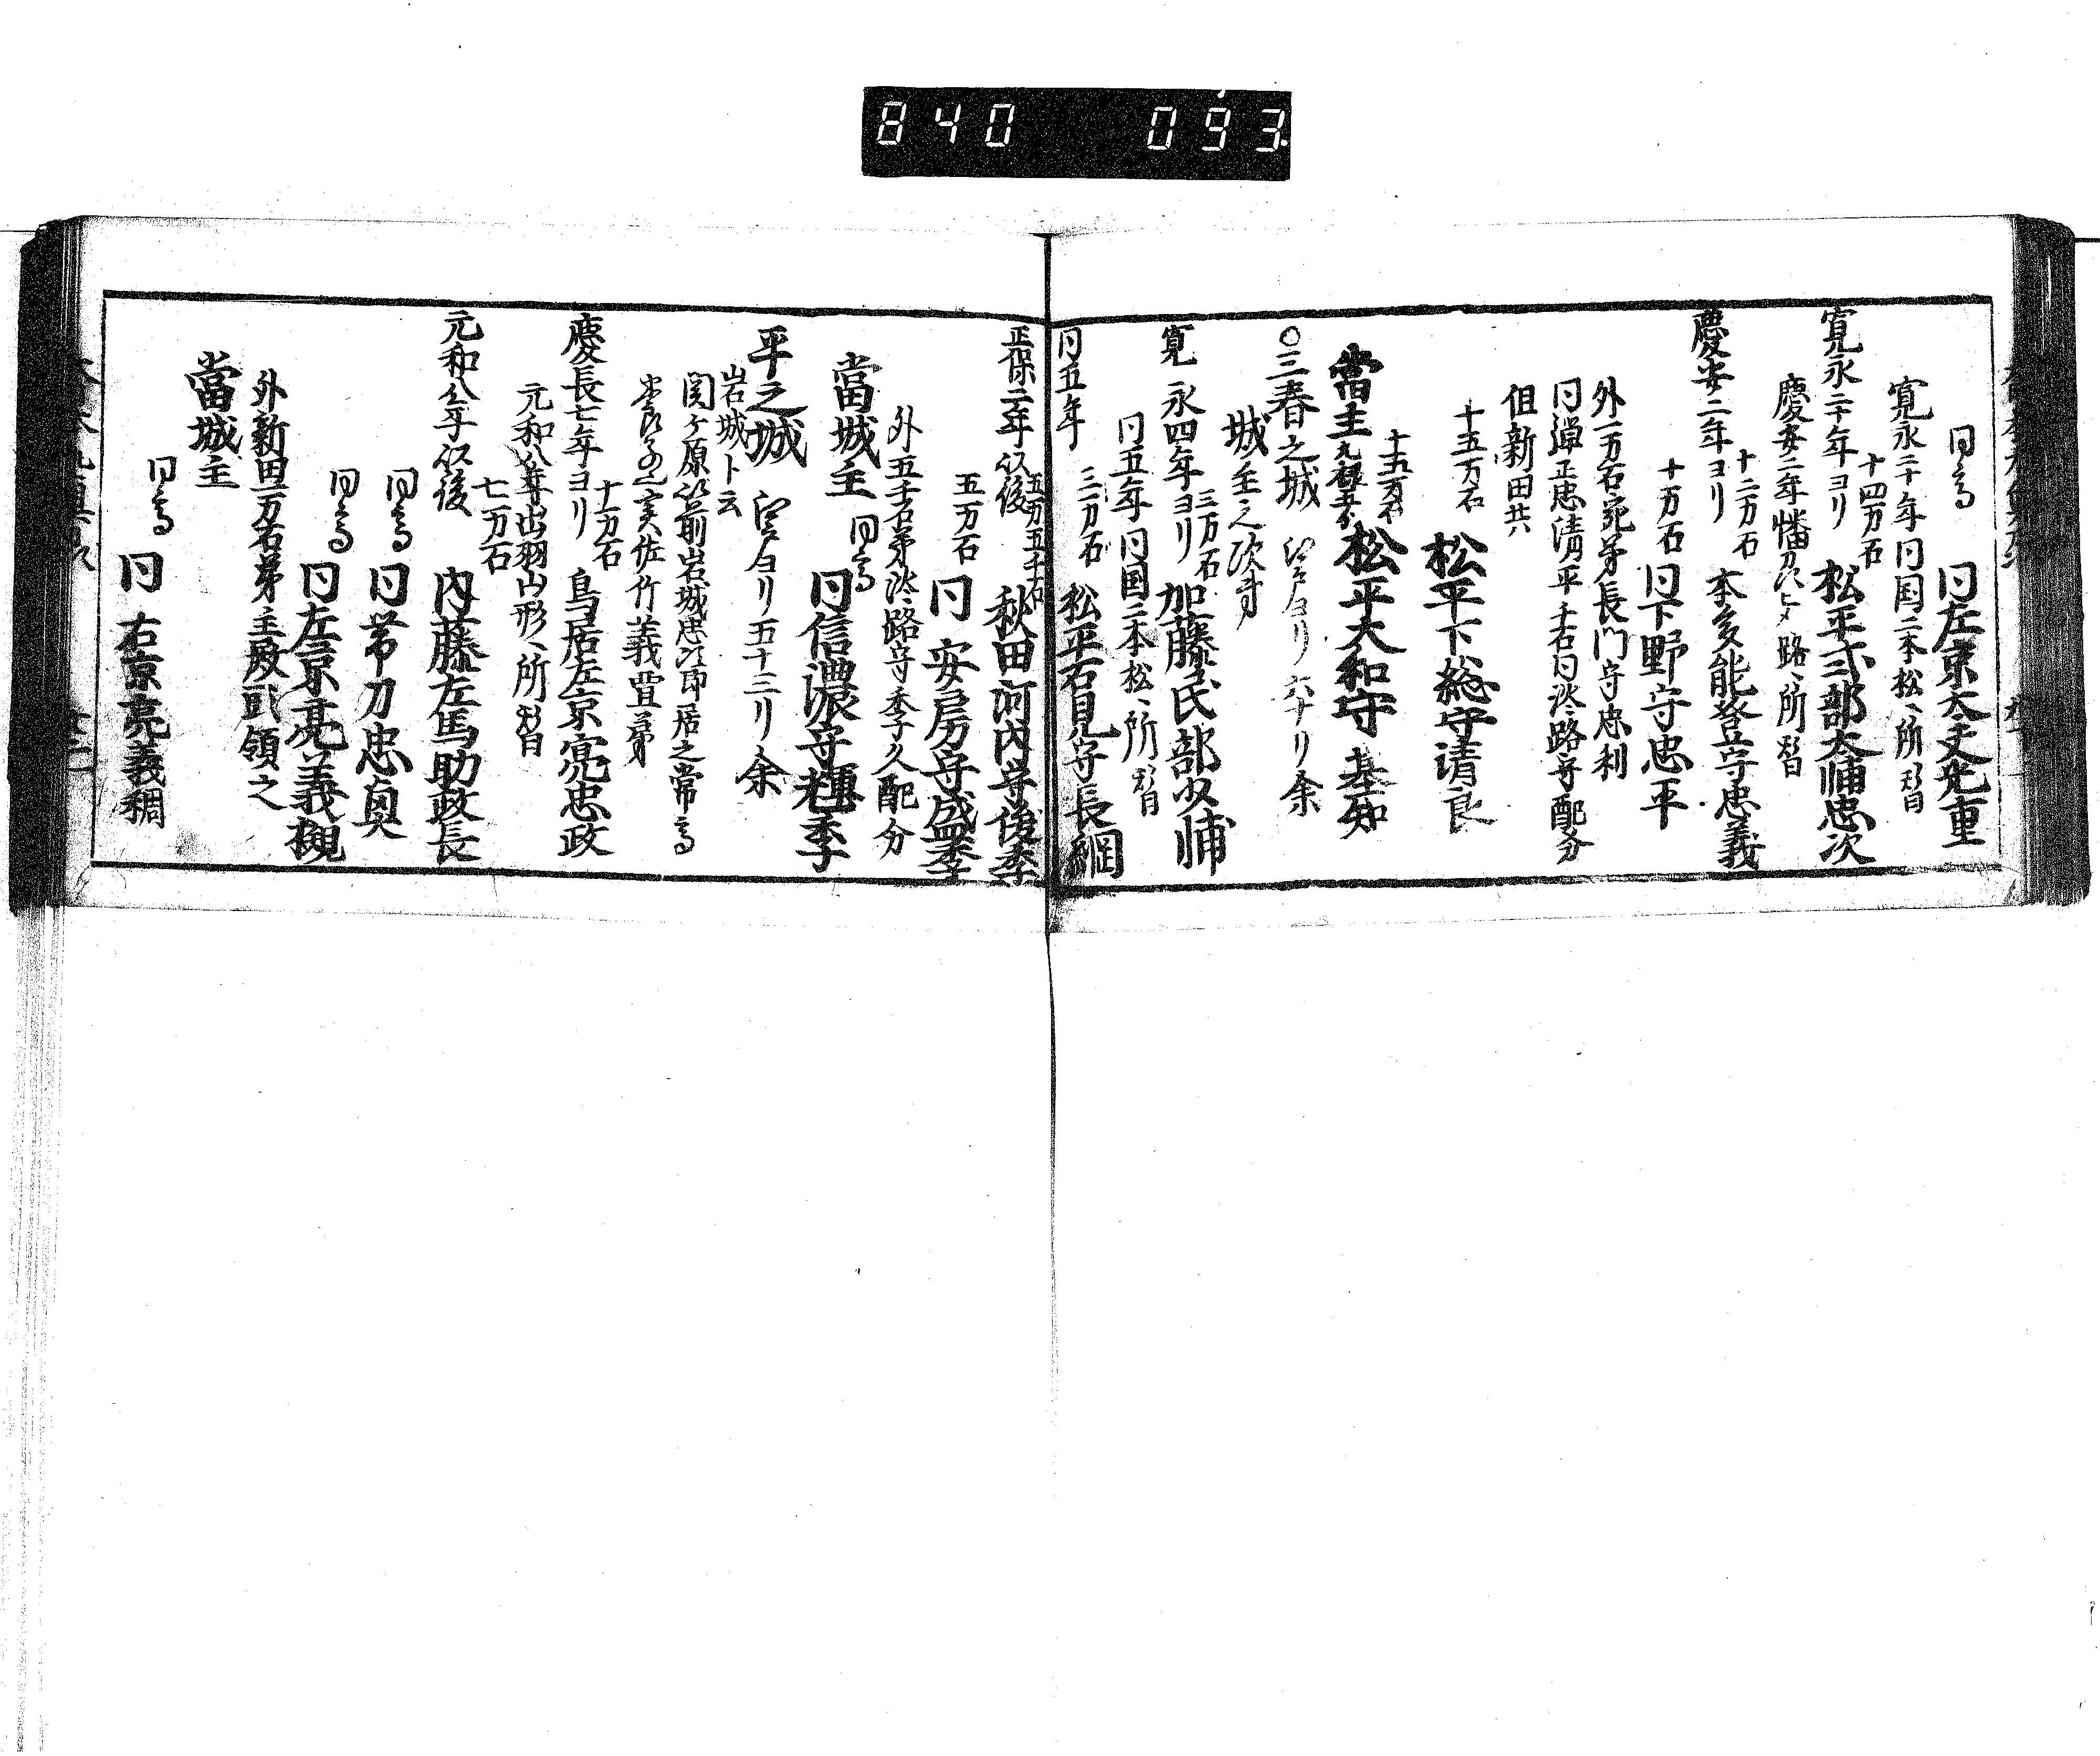 840 093
同高 同左京大夫光重
寛永二十年同国二本松、所替
十四万石
寛永二十年ヨリ 松平式部大輔忠次
慶安二年幡州ヒメ路、所替
十二万石
慶安二年ヨリ 本多能登守忠義
十万石 同下野守忠平
外一万石宛弟長門守忠利
同弾正忠清平千石同淡路守配分
但新田共
十五万石 松平下総守清良
十五万石
當主 元禄五ヨリ 松平大和守基知
○三春之城 江戸ヨリ六十リ余
城主之次第
三万石
寛永四年ヨリ 加藤民部少輔
同五年同国二本松、所替
同五年 三万石 松平石見守長綱
五万五千石
正保二年以後 秋田河内守俊季
五万石 同安房守盛季
外五千石弟淡路守季久配分
當城主 同高 同信濃守輝季
平之城 江戸ヨリ五十三リ余
岩城ト云
関ヶ原以前岩城忠次郎居之常高
実佐竹義宣弟
十万石
慶長七年ヨリ 鳥居左京亮忠政
元和八年出羽山形、所替
七万石
元和八年以後 内藤左馬助政長
同高 同帯刀忠奥
同高 同左京亮義概
外新田一万石弟主殿頭領之
當城主
同高 同右京亮義稠